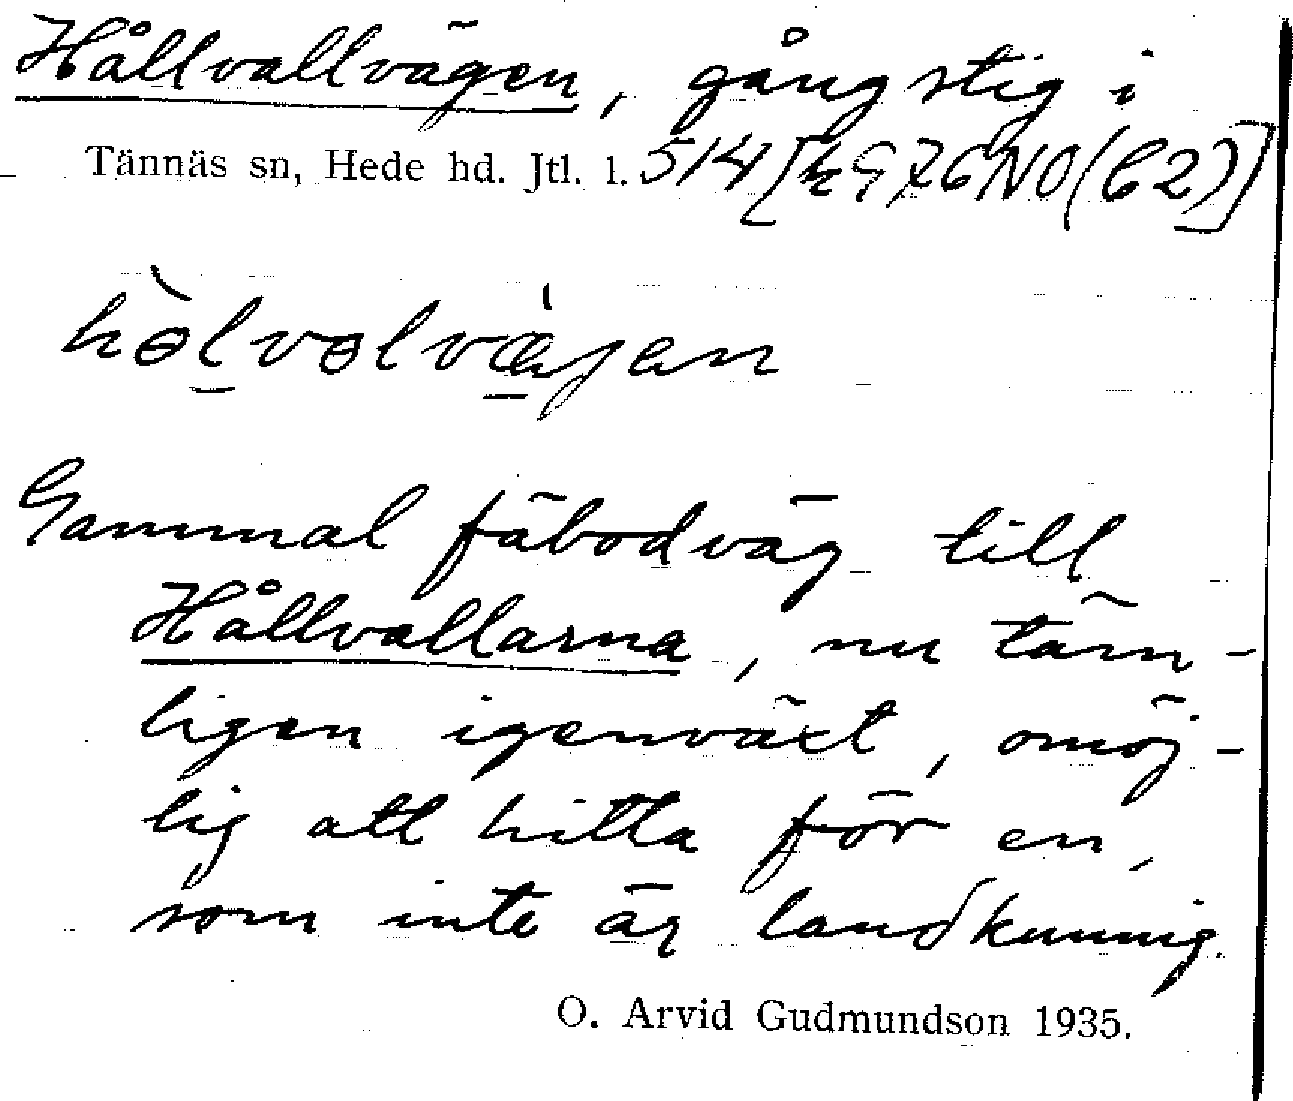 Hållvallvägen, gångstig i
Tännäs sn, Hede hd. Jtl. l. 514 NO (C2)]
hɵ̀lvɵlvæ̀jen
Gammal fäbodväg till
Hållvallarna, nu täm-
ligen igenväxt, omöj-
lig att hitta för en,
som inte är landkunnig.
O. Arvid Gudmundson 1935.